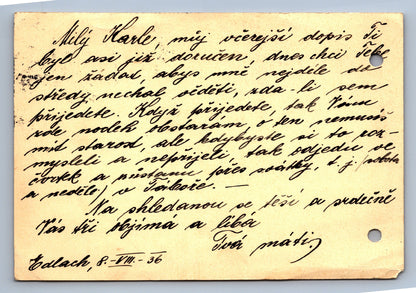 Milý Karle, můj včerejší dopis Ti
byl asi již doručen, dnes chci Tebe
jen žádat, abys mně nejdéle do
středy nechal věděti, zda-li sem
přijedete. Když přijedete, tak Vám
zde obstarám, o ten nemusíš
mít starost, ale kdybyste si to roz-
mysleli a nepřijeli, tak odjedu ve
čtvrtek a zůstanu přes svátky, t. j. sobota
a neděle) v Táboře. —
Na shledanou se těší a srdečně
Vás tři objímá a líbá
Tvá máti.
Edlach, 8.-VIII.-36